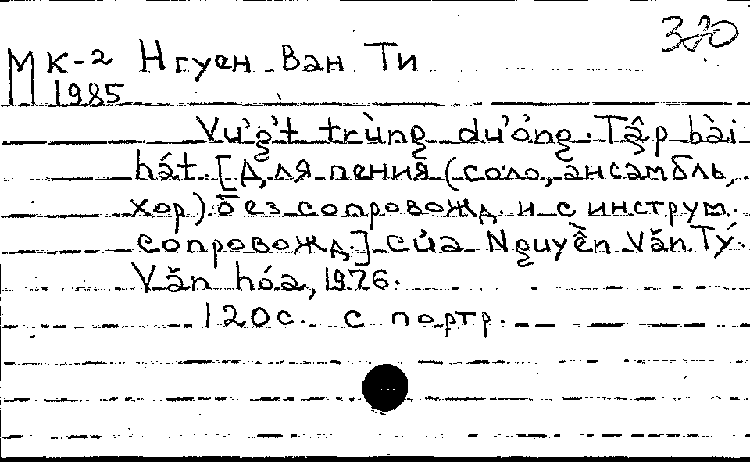 320
МК-2 Нгуен Ван Ти
1985
Vượt trùng dương. Tập bài
hát. [Для пения (соло, ансамбль,
хор) без сопровожд. и с инструм.
сопровожд.] của Nguyễn Văn Tý.
Văn hóa, 1976.
120с. с портр.